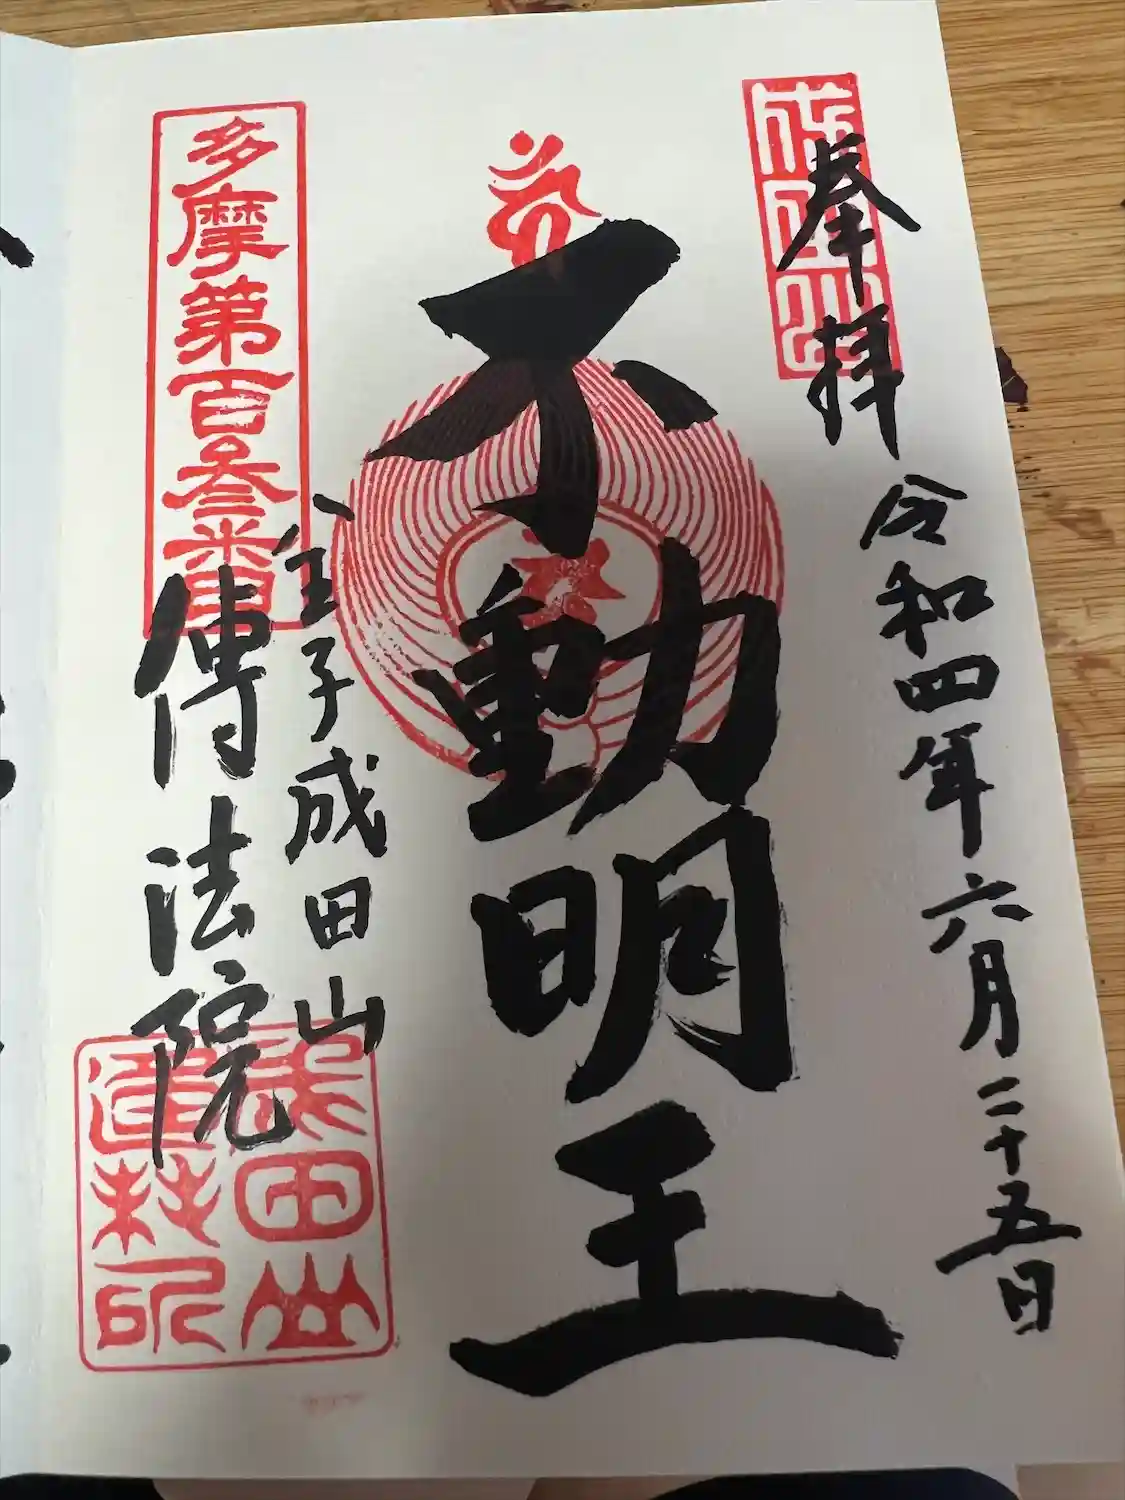 奉拝
令和四年六月二十五日
成田山
不動明王
八王子成田山
傳法院
多摩第百叄番
成田山
遙拝所